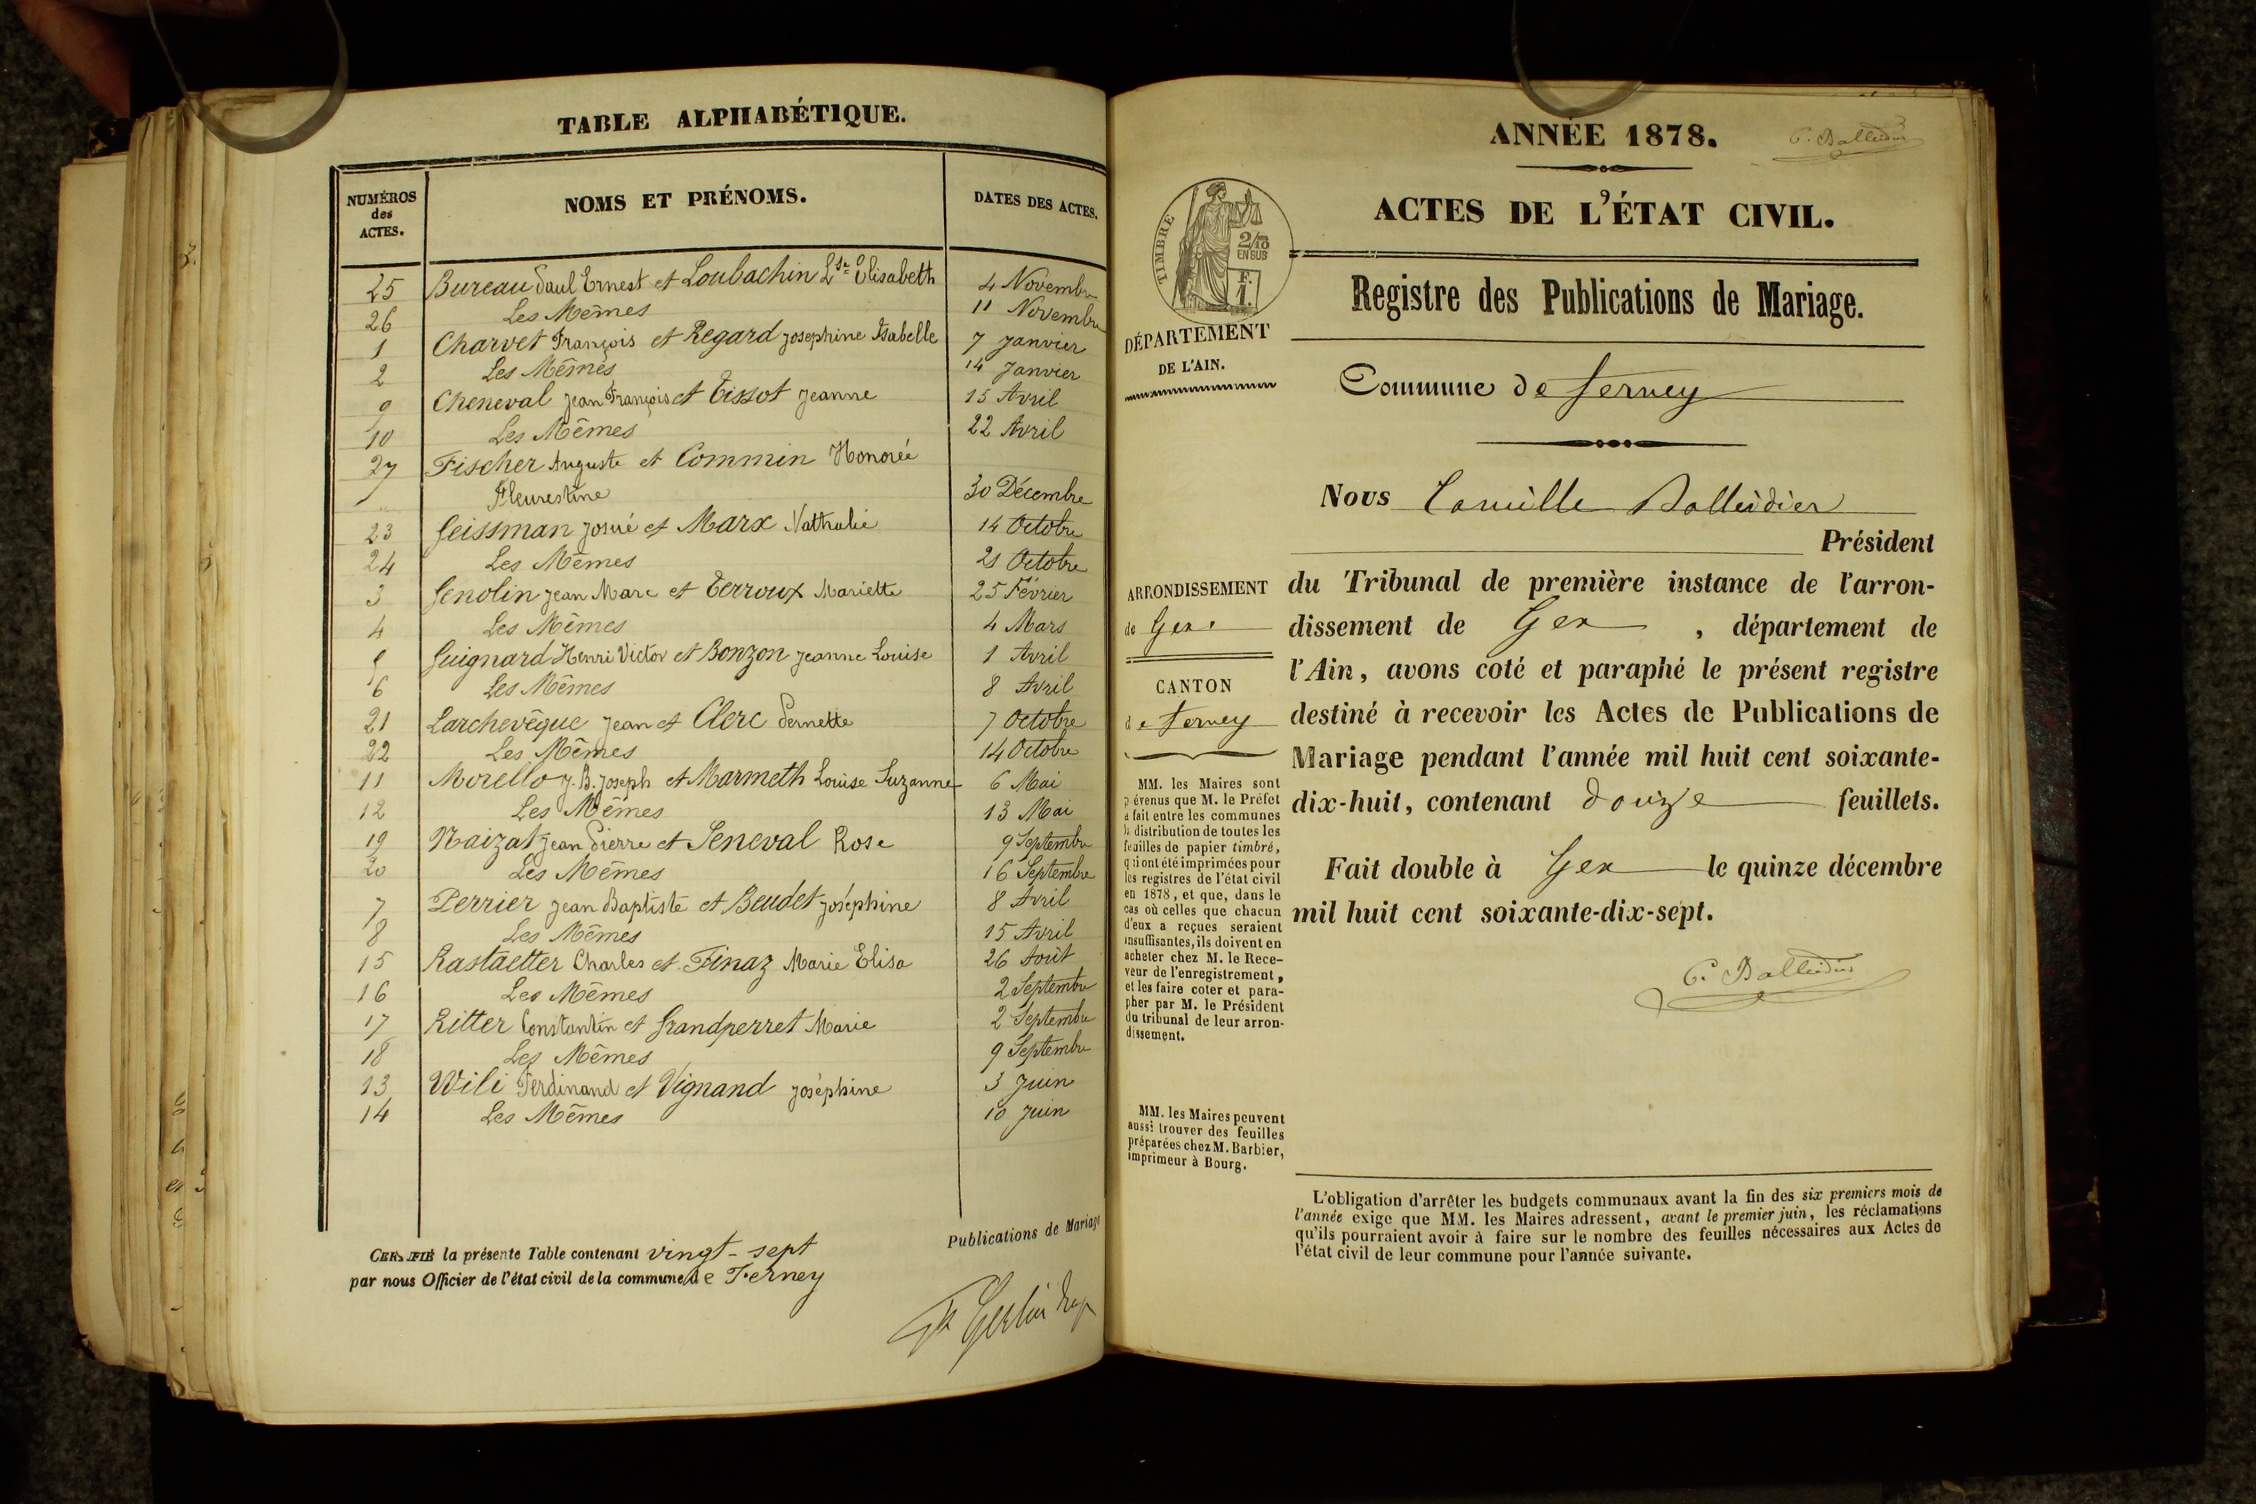 TABLE ALPHABÉTIQUE.
NUMÉROS des ACTES. NOMS ET PRÉNOMS. DATES DES ACTES.
25 Bureau Paul Ernest et Loubachin Lse Elisabeth 4 Novembre
26 Les Mêmes 11 Novembre
1 Charvet François et Regard Josephine Isabelle 7 Janvier
2 Les Mêmes 14 Janvier
9 Cheneval Jean François et Tissot Jeanne 15 Avril
10 Les Mêmes 22 Avril
27 Fischer Auguste et Commin Honorée
Fleurestine 30 Décembre
23 Geissman Josué et Marx Nathalie 14 Octobre
24 Les Mêmes 21 Octobre
3 Genolin Jean Marc et Terroux Mariette 25 Février
4 Les Mêmes 4 Mars
5 Guignard Henri Victor et Bonzon Jeanne Louise 1 Avril
6 Les Mêmes 8 Avril
21 Larchevêque Jean et Clerc Pernette 7 Octobre
22 Les Mêmes 14 Octobre
11 Morello J. B. Joseph et Marmeth Louise Suzanne 6 Mai
12 Les Mêmes 13 Mai
19 Naizat Jean Pierre et Seneval Rose 9 Septembre
20 Les Mêmes 16 Septembre
7 Perrier Jean Baptiste et Beudet Joséphine 8 Avril
8 Les Mêmes 15 Avril
15 Rastaetter Charles et Finaz Marie Elisa 26 Août
16 Les Mêmes 2 Septembre
17 Ritter Constantin et Grandperret Marie 2 Septembre
18 Les Mêmes 9 Septembre
13 Wili Ferdinand et Vignand Joséphine 3 Juin
14 Les Mêmes 10 Juin
CERTIFIÉ la présente Table contenant vingt-sept Publications de Mariage
par nous Officier de l'état civil de la commune de Ferney
ANNÉE 1878.
C. Balleidier
ACTES DE L'ÉTAT CIVIL.
TIMBRE
2/10
EN SUS
F.
1.
Registre des Publications de Mariage.
DÉPARTEMENT
DE L'AIN.
Commune de Ferney
Nous Camille Balleidier
Président
du Tribunal de première instance de l'arron-
dissement de Gex, département de
l'Ain, avons coté et paraphé le présent registre
destiné à recevoir les Actes de Publications de
Mariage pendant l'année mil huit cent soixante-
dix-huit, contenant douze feuillets.
Fait double à Gex le quinze décembre
mil huit cent soixante-dix-sept.
C. Balleidier
ARRONDISSEMENT
de Gex.
CANTON
de Ferney
MM. les Maires sont
prévenus que M. le Préfet
a fait entre les communes
la distribution de toutes les
feuilles de papier timbré,
qui ont été imprimées pour
les registres de l'état civil
en 1878, et que, dans le
cas où celles que chacun
d'eux a reçues seraient
insuffisantes, ils doivent en
acheter chez M. le Rece-
veur de l'enregistrement,
et les faire coter et para-
pher par M. le Président
du tribunal de leur arron-
dissement.
MM. les Maires peuvent
aussi trouver des feuilles
préparées chez M. Barbier,
imprimeur à Bourg.
L'obligation d'arrêter les budgets communaux avant la fin des six premiers mois de
l'année exige que MM. les Maires adressent, avant le premier juin, les réclamations
qu'ils pourraient avoir à faire sur le nombre des feuilles nécessaires aux Actes de
l'état civil de leur commune pour l'année suivante.